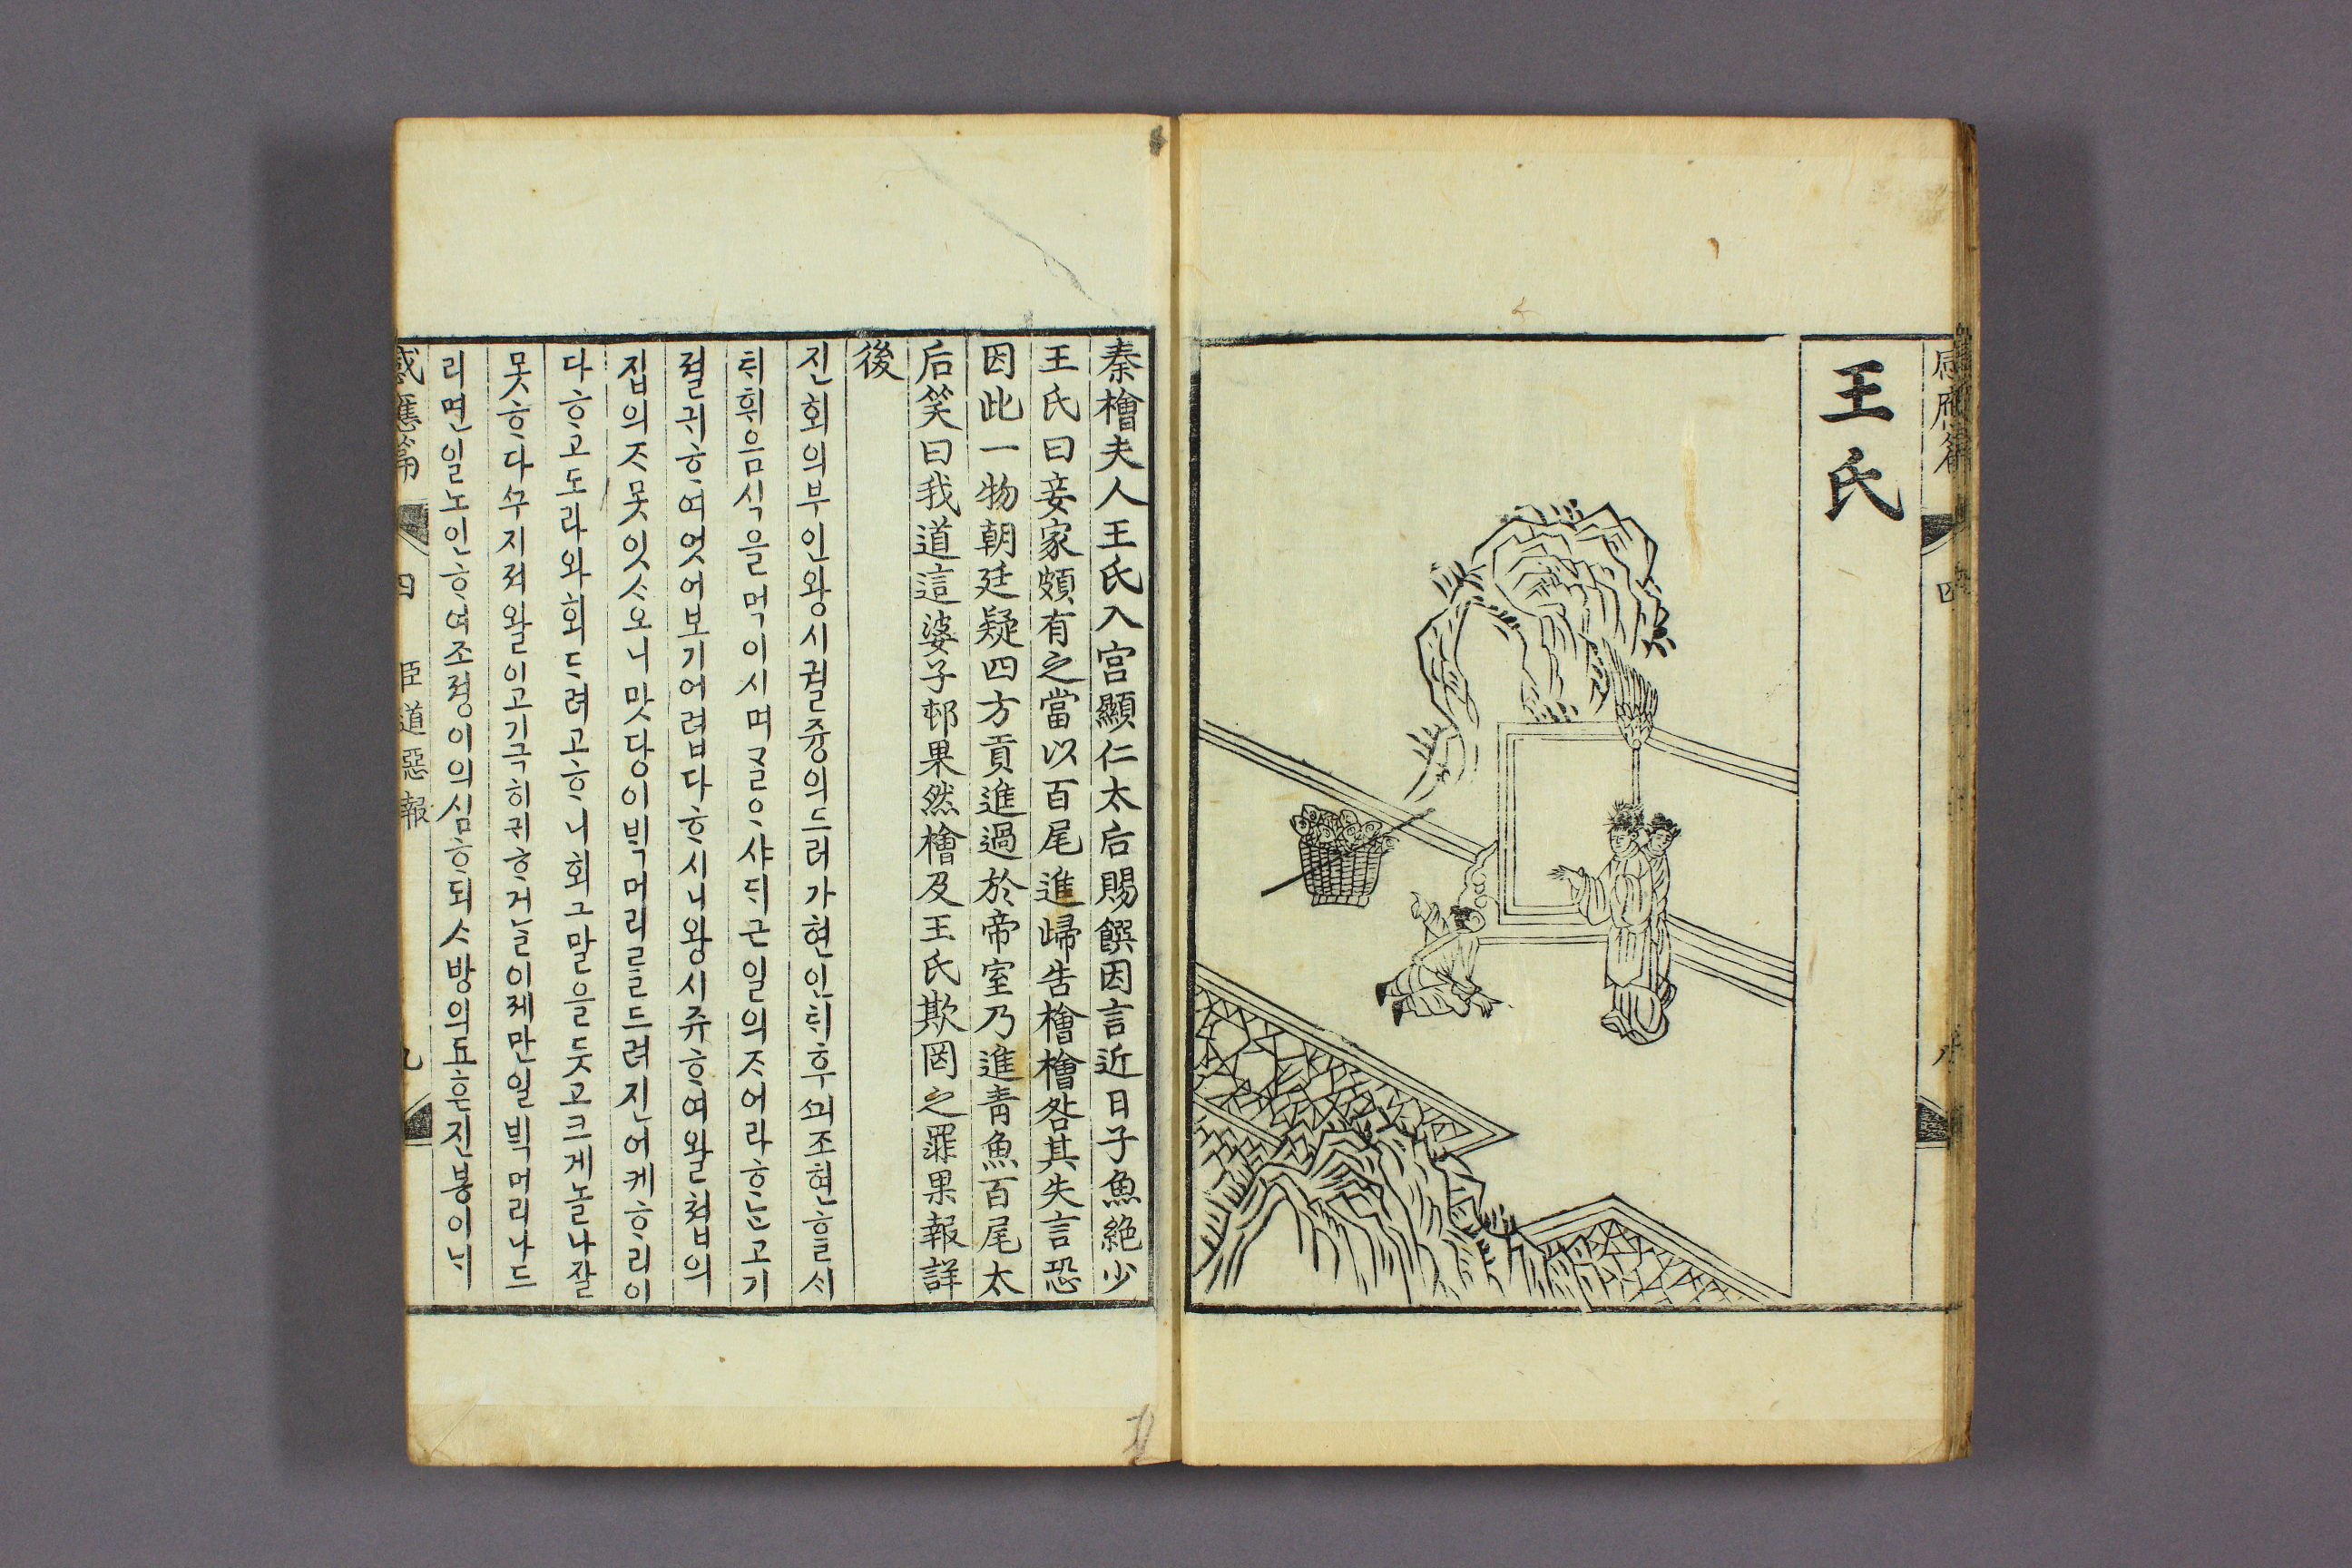 王氏
秦檜夫人王氏入宮顯仁太后賜饌因言近日子魚絶少
王氏曰妾家頗有之當以百尾進歸告檜檜咎其失言恐
因此一物朝廷疑四方貢進過於帝室乃進靑魚百尾太
后笑曰我道這婆子邨果然檜及王氏欺罔之罪果報詳
後
진회의부인왕시궐즁의드러가현인ᄐᆡ후ᄭᅴ조현ᄒᆞᆯᄉᆡ
ᄐᆡ휘음식을먹이시며ᄀᆞᆯᄋᆞ샤ᄃᆡ근일의ᄌᆞ어라ᄒᆞᄂᆞᆫ고기
졀귀ᄒᆞ여엇어보기어렵다ᄒᆞ시니왕시쥬ᄒᆞ여왈쳡의
집의ᄌᆞ못잇ᄉᆞ오니맛당이ᄇᆡᆨ머리ᄅᆞᆯ드려진어케ᄒᆞ리이
다ᄒᆞ고도라와회ᄃᆞ려고ᄒᆞ니회그말을듯고크게놀나잘
못ᄒᆞ다ᄭᅮ지져왈이고기극히귀ᄒᆞ거ᄂᆞᆯ이졔만일ᄇᆡᆨ머리나드
리면일노인ᄒᆞ여조졍이의심ᄒᆞ되ᄉᆞ방의됴흔진봉이ᄂᆡ
感應篇 四 臣道惡報 九